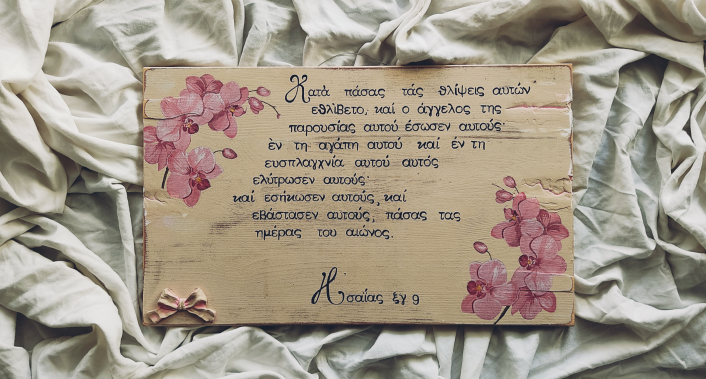 Κατὰ πάσας τάς θλίψεις αυτών
εθλίβετο, καί ο άγγελος της
παρουσίας αυτού έσωσεν αυτούς·
ἐν τη αγάπη αυτού καί ἐν τη
ευσπλαγχνία αυτού αυτός
ελύτρωσεν αυτούς·
καί εσήκωσεν αυτούς, καί
εβάστασεν αυτούς, πάσας τας
ημέρας του αιώνος.
Ησαΐας ξγ 9